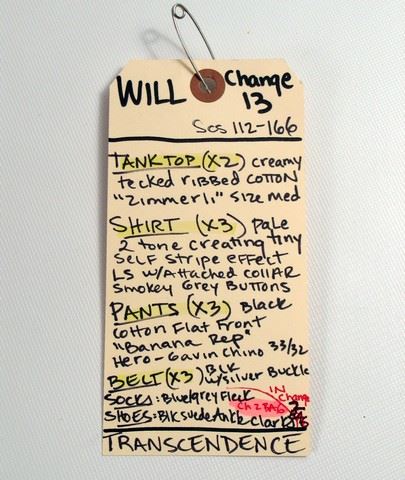 WILL Change 13
Scs 112-166
TANKTOP (x2) creamy
tecked ribbed cotton
"Zimmerli" size med
SHIRT (x3) Pale
2 tone creating tiny
self stripe effect
LS w/Attached collar
smokey Grey Buttons
PANTS (x3) Black
cotton Flat Front
"Banana Rep"
Hero-Gavin chino 33/32
BELT (x3) Blk w/silver Buckle
SOCKS: Blue/grey Fleck
IN Change
Ch 2 BAG
SHOES: Blk suede Ankle Clark
TRANSCENDENCE